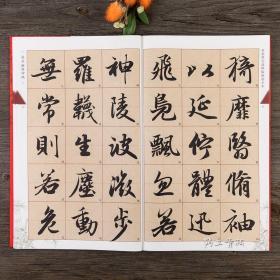 猗靡翳脩袖
以延佇體迅
飛鳧飄忽若
神陵波微步
羅韈生塵動
無常則若危